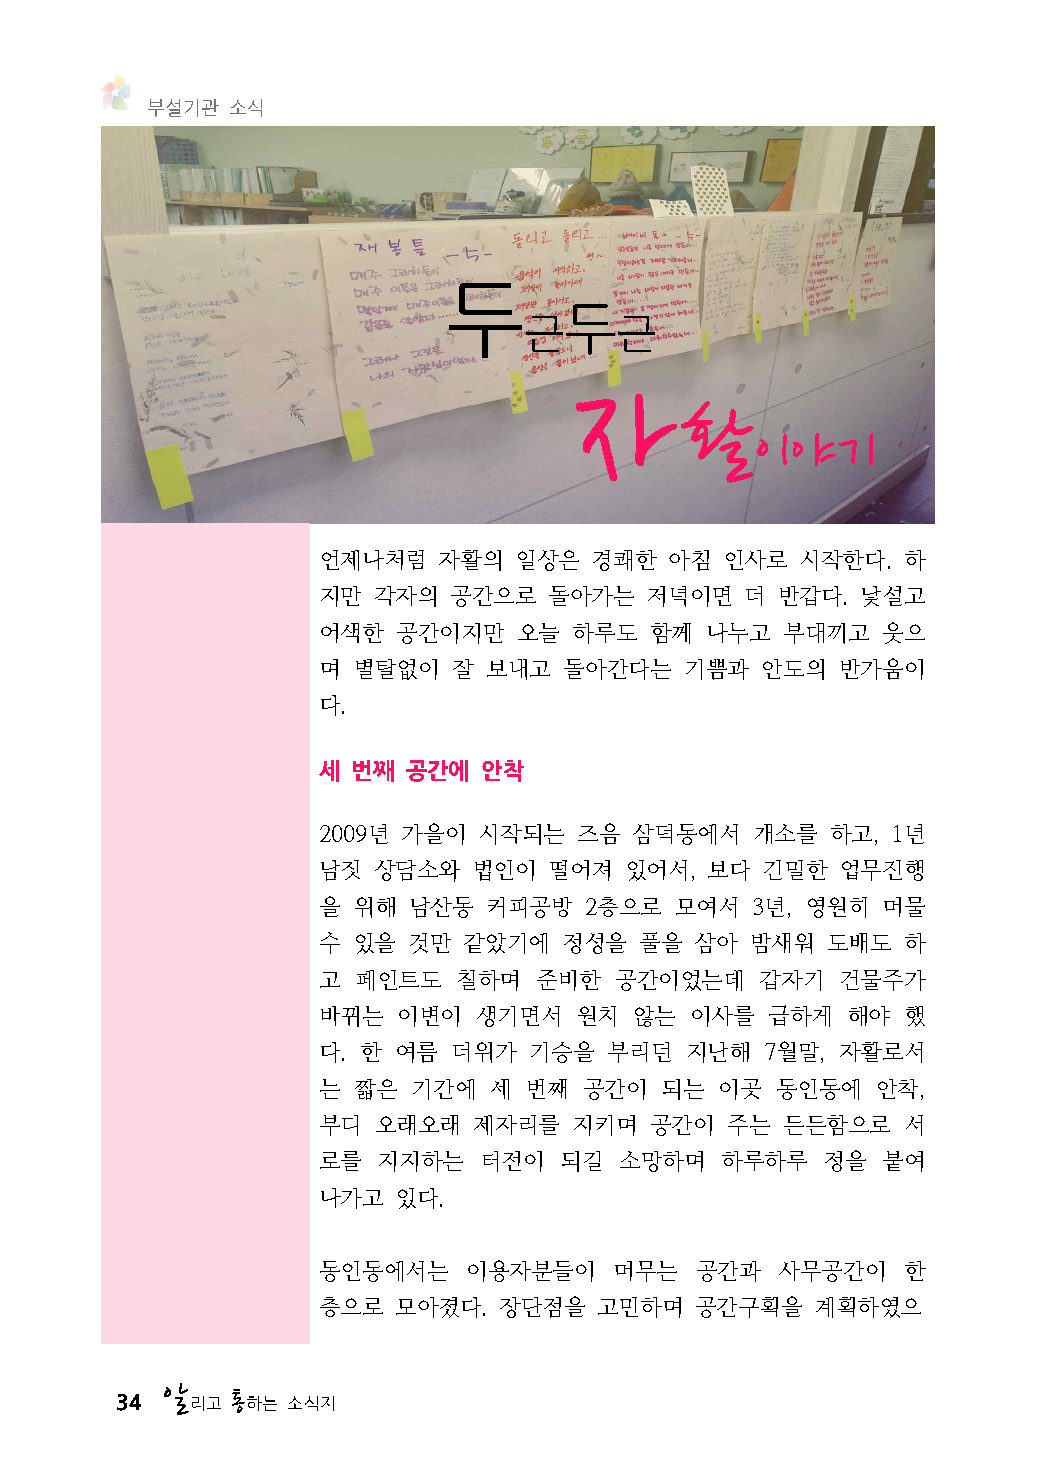 부설기관 소식
재봉틀
돌리고 돌리고...
두근두근
자활이야기
언제나처럼 자활의 일상은 경쾌한 아침 인사로 시작한다. 하
지만 각자의 공간으로 돌아가는 저녁이면 더 반갑다. 낯설고
어색한 공간이지만 오늘 하루도 함께 나누고 부대끼고 웃으
며 별탈없이 잘 보내고 돌아간다는 기쁨과 안도의 반가움이
다.
세 번째 공간에 안착
2009년 가을이 시작되는 즈음 삼덕동에서 개소를 하고, 1년
남짓 상담소와 법인이 떨어져 있어서, 보다 긴밀한 업무진행
을 위해 남산동 커피공방 2층으로 모여서 3년, 영원히 머물
수 있을 것만 같았기에 정성을 풀을 삼아 밤새워 도배도 하
고 페인트도 칠하며 준비한 공간이었는데 갑자기 건물주가
바뀌는 이변이 생기면서 원치 않는 이사를 급하게 해야 했
다. 한 여름 더위가 기승을 부리던 지난해 7월말, 자활로서
는 짧은 기간에 세 번째 공간이 되는 이곳 동인동에 안착,
부디 오래오래 제자리를 지키며 공간이 주는 든든함으로 서
로를 지지하는 터전이 되길 소망하며 하루하루 정을 붙여
나가고 있다.
동인동에서는 이용자분들이 머무는 공간과 사무공간이 한
층으로 모아졌다. 장단점을 고민하며 공간구획을 계획하였으
34 알리고 통하는 소식지